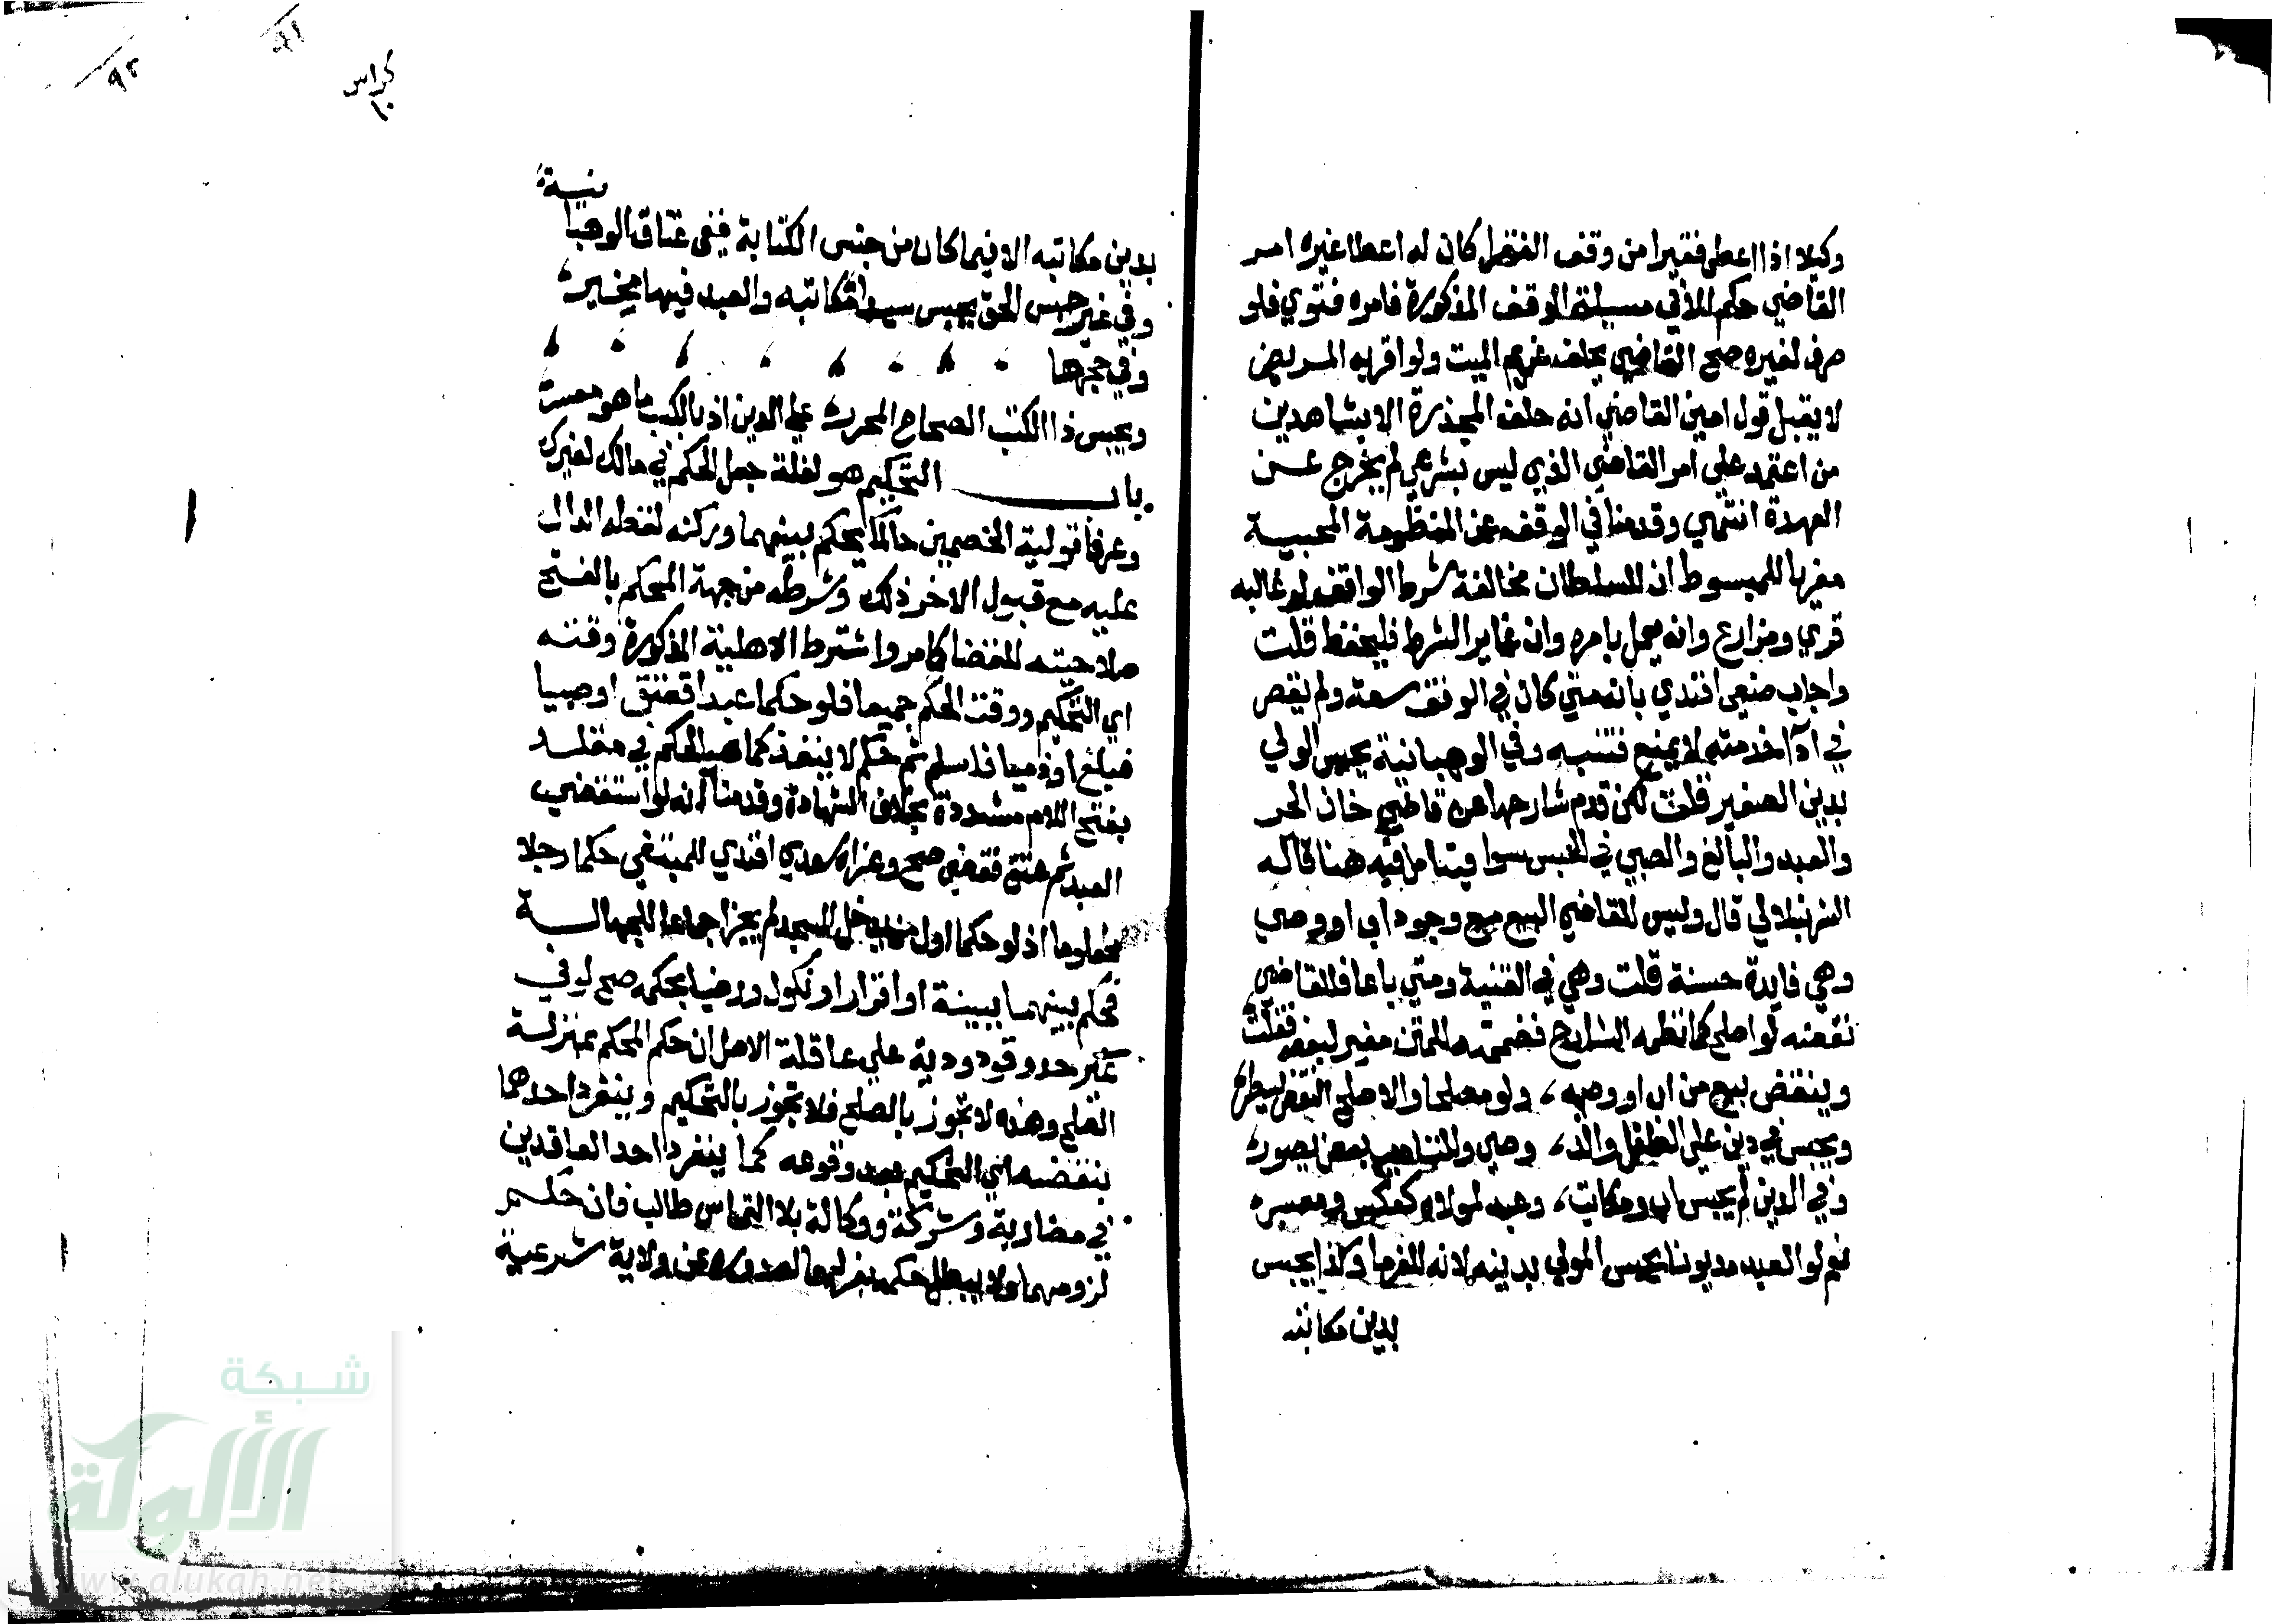 وكيلا اذا اعطي فقيرا من وقف الفقرا كان له اعطا غيره امر
القاضي حكم الا في مسيلة الوقف المذكورة فامره فتوي فلو
صرف لغيره صح القاضي يحلف غريم الميت ولو اقر به المريض
لا يقبل قول امين القاضي انه حلف المخدرة الا بشاهدين
من اعتمد علي امر القاضي الذي ليس بشرعي لم يخرج عن
العهدة انتهي وقدمنا في الوقف عن المنظومة المحبية
معزيا للمبسوط ان للسلطان مخالفة شرط الواقف لو غالبه
قري ومزارع وانه يعمل بامره وان غاير الشرط فليحفظ قلت
واجاب صنعي افندي بانه متي كان في الوقف سعة ولم يقصر
في ادآ خدمته لا يمنع فتنبه وفي الوهبانية يحبس الولي
بدين الصغير قلت لكن قدم شارحها عن قاضي خان الحر
والعبد والبالغ والصبي في الحبس سوا فيتامل فيه هنا قاله
الشرنبلالي قال وليس للقاضي البيع مع وجود اب او وصي
وهي فايدة حسنة قلت وهي في القنية ومتي باعا فللقاضي
نقضه لو اصلح كما نظمه الشارح فضممته للمتن مغير لبعضه فقلت
وينقض بيع من اب او وصيه، ولو مصلحا والاصلح النقض يسطر
ويحبس في دين علي الطفل والد، وصي وللتاديب بعض يصور
وفي الدين لم يحبس اب ومكاتب، وعبد لمولاه كعكس ومعسر
نعم لو العبد مديونا يحبس المولي بدينه لانه للغرما وكذا يحبس
بدين مكاتبه
كراس
١٠
٩١
٩٢
نية
بدين مكاتبه الا فيما كان من جنس الكتابة ففي عتاق الوهبا
وفي غير جنس الحق يحبس سيدا مكاتبه والعبد فيها مخير
وفي حجرها
ويحبس ذا الكتب الصحاح المحرر علي الدين اذ بالكتب ما هو معسر
باب التحكيم هو لغلة جعل الحكم في مالك لغيرك
وعرفا تولية الخصمين حاكما يحكم بينهما وركنه لفظه الدال
عليه مع قبول الاخر ذلك وشرطه من جهة المحكم بالفتح
صلاحيته للقضا كما مر واشترط الاهلية المذكورة وقته
اي التحكيم ووقت الحكم جميعا فلو حكما عبدا فعتق او صبيا
فبلغ او ذميا فاسلم ثم حكم لا ينفذ كما هو الحكم في مقلد
بفتح اللام مشددة بخلاف الشهادة وقدمنا انه لو استقضي
العبد ثم عتق فقضي صح وعزاه سعدي افندي للمبتغي حكما رجلا
معلوما اذ لو حكما اول من يدخل المسجد لم يجز اجماعا للجهالة
فحكم بينهما ببينة او اقرار او نكول ورضيا بحكمه صح لو في
غير حد وقود ودية علي عاقلة الاصل ان حكم المحكم بمنزلة
الصلح وهذه لا تجوز بالصلح فلا تجوز بالتحكيم وينفرد احدهما
بنقضه اي التحكيم بعد وقوعه كما ينفرد احد العاقدين
في مضاربة وشركة ووكالة بلا التماس طالب فان حكم
لزومهما ولا يبطل حكمه بعزلهما لصدوره عن ولاية شرعية
شبكة
الألوكة
www.alukah.net